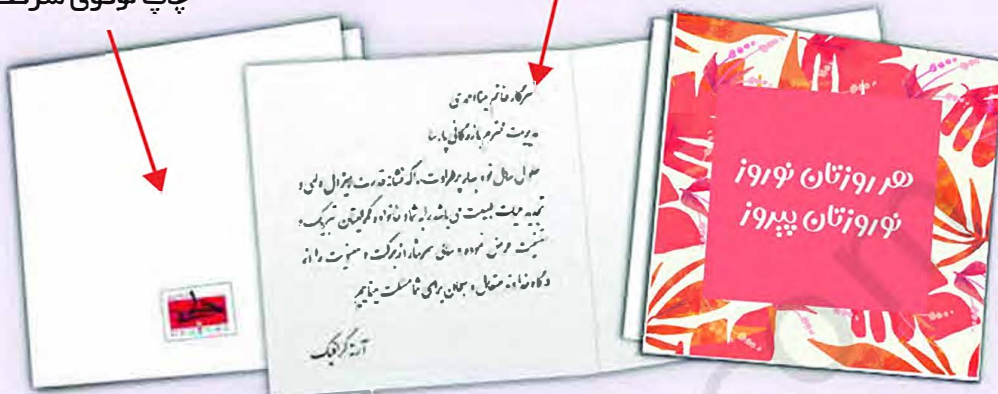 چاپ لوگوی شرکت
سرکار خانم مینا احدی
مدیریت محترم بازرگانی پارسا
حلول سال نو و بهار پرطراوت را که نشانه قدرت لایزال الهی و
تجدید حیات طبیعت می باشد را به شما و خانواده گرامیتان تبریک و
تهنیت عرض نموده و سالی سرشار از برکت و معنویت را از
درگاه خداوند متعال و سبحان برای شما مسئلت مینماییم
آرته گرافیک
هر روزتان نوروز
نوروزتان پیروز